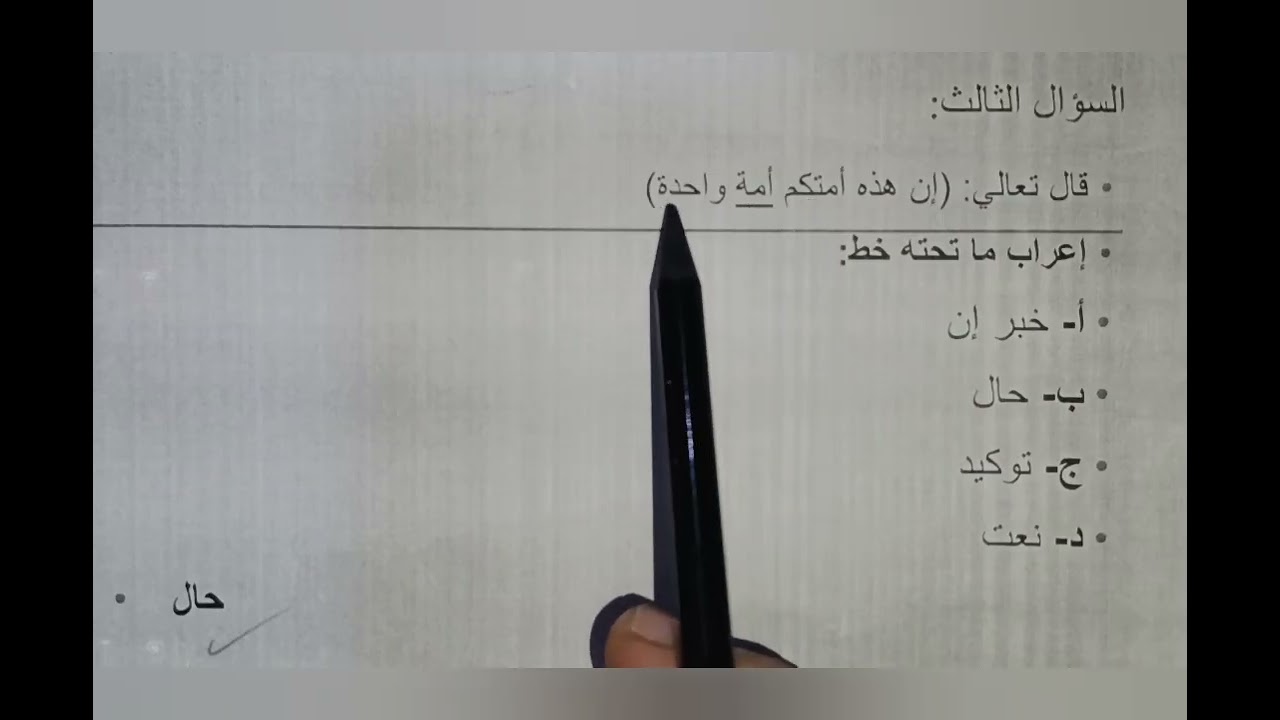 السؤال الثالث:
• قال تعالي: (إن هذه أمتكم أمة واحدة)
• إعراب ما تحته خط:
• أ- خبر إن
• ب- حال
• ج- توكيد
• د- نعت
• حال